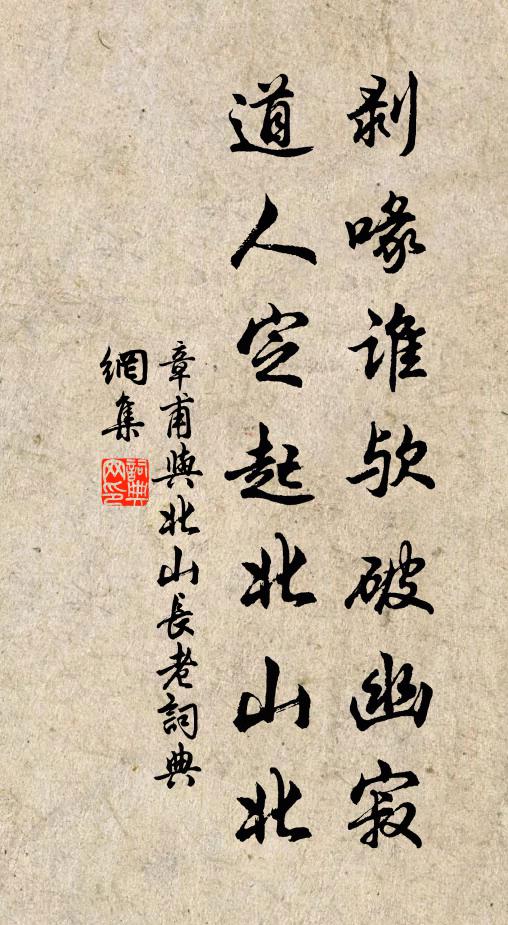 剥啄谁欤破幽寂
道人定起北山北
章甫與北山長老詞典
網集
詞典
网印